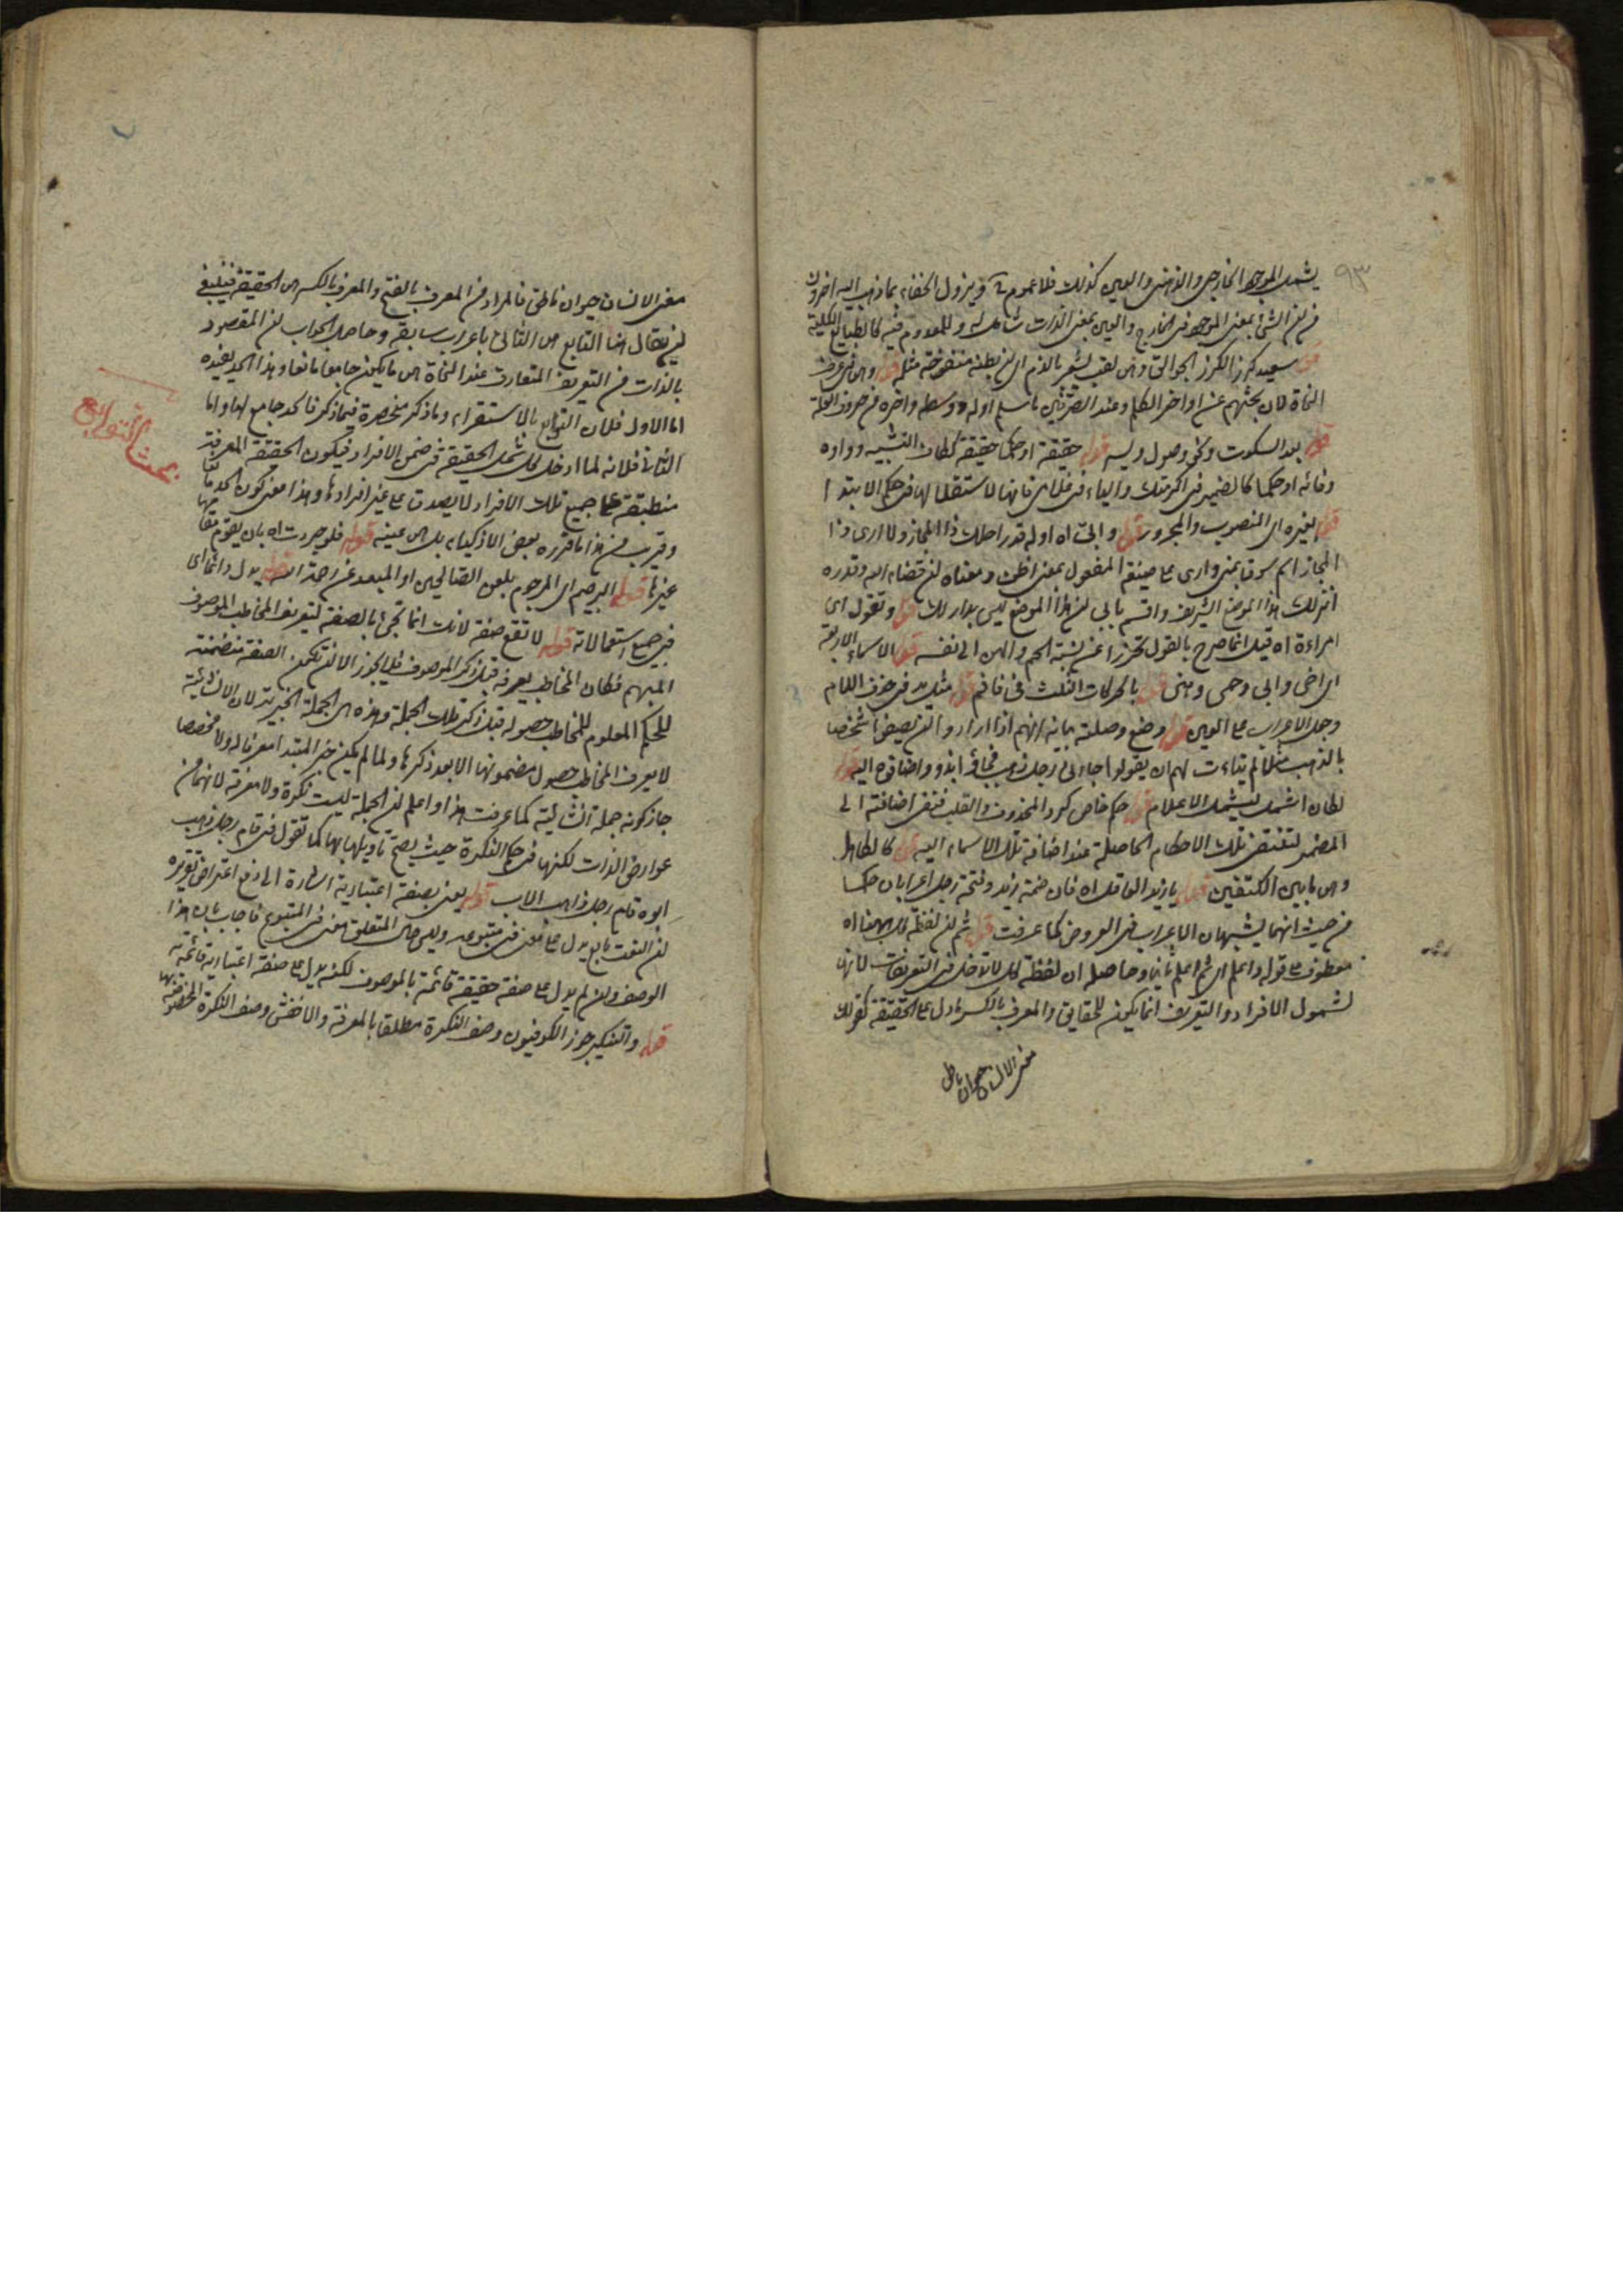 ٩٣
يشمل الموجود الخارجي والذهني والعين كذلك فلا عموم ويزول الخفاء بما ذهب اليه اخرون
من ان الشئ بمعنى الموجود في الخارج والعين بمعنى الذات شامل له وللمعدوم فيه كالطبايع الكلية
قوله سعيد كرز الكرز الجوالق وهي لقب يشعر بالذم اي ان بطنه منتفخة مثله قوله وهي في عرف
النحاة لان بحثهم عن اواخر الكلم وعند الصرفيين ما سلم اوله ووسطه واخره من حروف العلة
قوله بعد السكوت وكل وصول وليه قوله حقيقة او حكما حقيقة ككاف التشبيه وواوه
وفائه او حكما كالضمير في اكرمتك والياء في غلامي فانها لاستقلالها في حكم الابتداء
قوله لغيره اي المنصوب والمجرور قوله وابى اه اوله قدر احلك ذا المجاز ولا ارى وذا
المجاز اسم سوق بمنى وارى على صيغة المفعول بمعنى اظن ومعناه ان قضاء الله وقدره
انزلك هذا الموضع الشريف واقسم بابي ان هذا الموضع ليس بدار لك قوله وتقول اي
امراءة اه قيل انما صرح بالقول تحرزا عن نسبة الحم والهن الى نفسه قوله الاسماء الاربعة
اي اخي وابي وحمى وهنى قوله بالحركات الثلث في فا فم قوله مثل يد في حذف اللام
وجعل الاعراب على العين قوله وضع وصلة بيانه انهم اذا ارادوا ان يصيفوا شخصا
بالذهب مثلا لم يتاءت لهم ان يقولوا جاءني رجل ذهب فجاؤا بذو واضافوه اليه قوله
لكان اشمل ليشمل الاعلام قوله حكم خاص كرد المحذوف والقلب فتقى اضافته الى
المضمر لتنتقض تلك الاحكام الحاصلة عند اضافة تلك الاسماء اليه قوله كالكاهل
وهي ما بين الكتفين قوله يا زيد العاقل اه فان ضمة زيد وفتحة رجل اعرابان حكما
من حيث انهما يشبهان الاعراب في العروض كما عرفت قوله ثم ان لفظة كل ههنا اه
معطوف على قوله واعلم اي ثم اعلم ثانيا وحاصله ان لفظة كل لا تدخل في التعريفات لانها
لشمول الافراد والتعريف انما يكون للحقايق والمعرف بالكسر ما دل على الحقيقة كقولك
معنى الانسان حيوان ناطق
معنى الانسان حيوان ناطق فالمراد من المعرف بالفتح والمعرف بالكسر هي الحقيقة فينبغي
ان يقال هنا التابع هي الثاني باعراب سابقه وحاصل الجواب ان المقصود
بالذات من التعريف المتعارف عند النحاة هي ما يكون جامعا مانعا وهذا الحد يفيده
اما الاول فلان التوابع بالاستقراء وما ذكر منحصرة فيما ذكر فالحد جامع لها واما
بحث التوابع
الثاني فلانه لما ادخل كل شمل الحقيقة في ضمن الافراد فيكون الحقيقة المعرفة
منطبقة على جميع تلك الافراد لا يصدق على غير افرادها وهذا معنى كون الحد مانعا
وقريب من هذا ما قرره بعض الاذكياء بل هي عينه قوله فلو جردت اه بان يقوم مقامها
غيرها قوله الرجيم اي المرجوم بلعن الصالحين او المبعد عن رحمة الله قوله يدل دائما اي
في جميع استعمالاته قوله لا تقع صفة لانك انما تجئ بالصفة لتعريف المخاطب الموصوف
المبهم فكان المخاطب يعرفه قبل ذكر الموصوف فلا يجوز الا ان تكون الصفة متضمنة
للحكم المعلوم للمخاطب حصوله قبل ذكر تلك الجملة وهذه هي الجملة الخبرية لان الانشائية
لا يعرف المخاطب حصول مضمونها الا بعد ذكرها ولما لم يكن خبر المبتدا معرفا له ولا مخصصا
جاز كونه جملة انشائية كما عرفت هذا واعلم ان الجملة ليست نكرة ولا معرفة لانهما من
عوارض الذات لكنها في حكم النكرة حيث يصح تاويلها بها كما تقول في قام رجل ذهب
ابوه قام رجل ذاهب الاب قوله يعني بصفة اعتبارية اشارة الى دفع اعتراض تقريره
ان النعت تابع يدل على معنى في متبوعه وليس حال المتعلق معنى في المتبوع فاجاب بان هذا
الوصف وان لم يدل على صفة حقيقة قائمة بالموصوف لكنه يدل على صفة اعتبارية قائمة به
قوله والتنكير جوز الكوفيون وصف النكرة مطلقا بالمعرفة والاخفش وصف النكرة المخصوصة بها